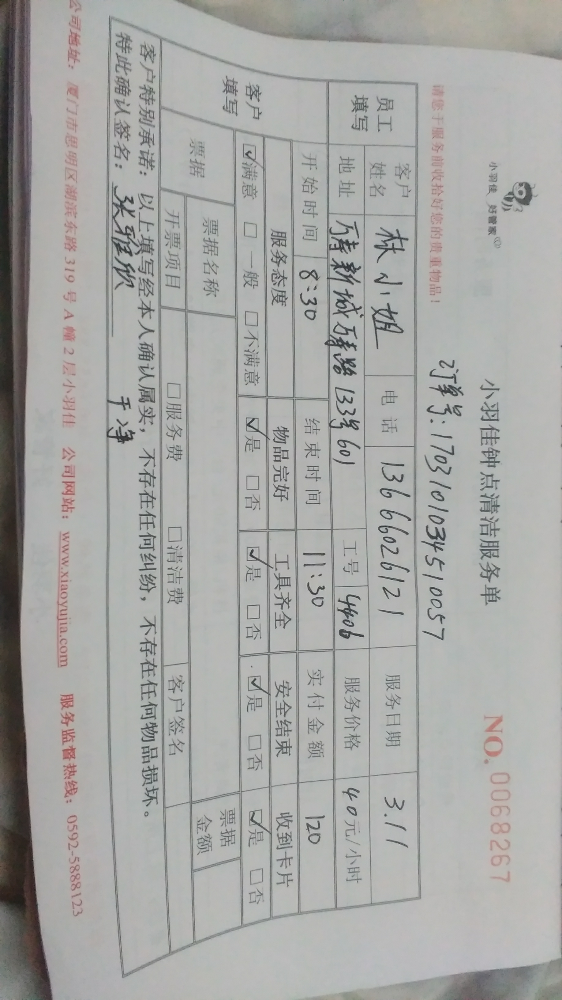 小羽佳 好管家
小羽佳钟点清洁服务单
NO. 0068267
订单号:1703101034510057
请您于服务前收拾好您的贵重物品!
员工填写 客户姓名 林小姐 电话 13666026121 服务日期 3.11
地址 万寿新城万寿路133号601 工号 4406 服务价格 40元/小时
开始时间 8:30 结束时间 11:30 实付金额 120
客户填写 服务态度 物品完好 工具齐全 安全结束 收到卡片
☑满意 □一般 □不满意 ☑是 □否 ☑是 □否 ☑是 □否 ☑是 □否
票据 票据名称 客户签名 票据金额
开票项目 □服务费 □清洁费
客户特别承诺:以上填写经本人确认属实,不存在任何纠纷,不存在任何物品损坏。
特此确认签名:张雅欣 干净
公司地址:厦门市思明区湖滨东路319号A幢2层小羽佳 公司网站:www.xiaoyujia.com 服务监督热线:0592-5888123